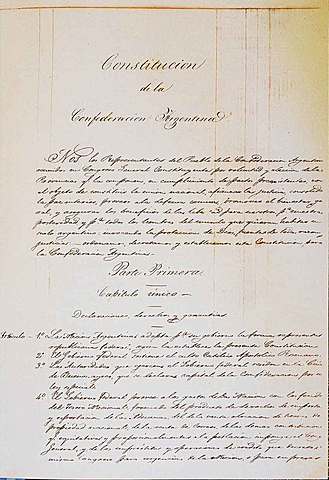 Constitucion
de la
Confederacion Argentina
Nos los Representantes del Pueblo de la Confederacion Argentina
reunidos en Congreso General Constituyente por voluntad y eleccion de las
Provincias que la componen, en cumplimiento de pactos preexistentes, con
el objeto de constituir la union nacional, afianzar la justicia, consolidar
la paz interior, proveer a la defensa comun, promover el bienestar gene-
ral, y asegurar los beneficios de la libertad para nosotros, pª nuestra
posteridad y pª todos los hombres del mundo que quieran habitar en el
suelo argentino: invocando la proteccion de Dios, fuente de toda razon y
justicia: ordenamos, decretamos y establecemos esta Constitucion para
la Confederacion Argentina.
Parte Primera
Capitulo único
Declaraciones, derechos y garantias
Articulo 1º La Nacion Argentina adopta pª su gobierno la forma representativa
republicana federal, segun la establece la presente Constitucion
2º El Gobierno Federal sostiene el culto Catolico Apostolico Romano.
3º Las Autoridades que ejercen el Gobierno federal residen en la Ciudad
de Buenos Ayres, que se declara capital de la Confederacion por una
ley especial.
4º El Gobierno Federal provee a los gastos de la Nacion con los fondos
del Tesoro Nacional, formado del producto de derechos de
de las
propiedad nacional, de las demas contribuciones
equitativa y proporcionalmente a la poblacion
General, y de los emprestitos y operaciones de credito que
mismo Congreso para urgencias de la Nacion o para empresas